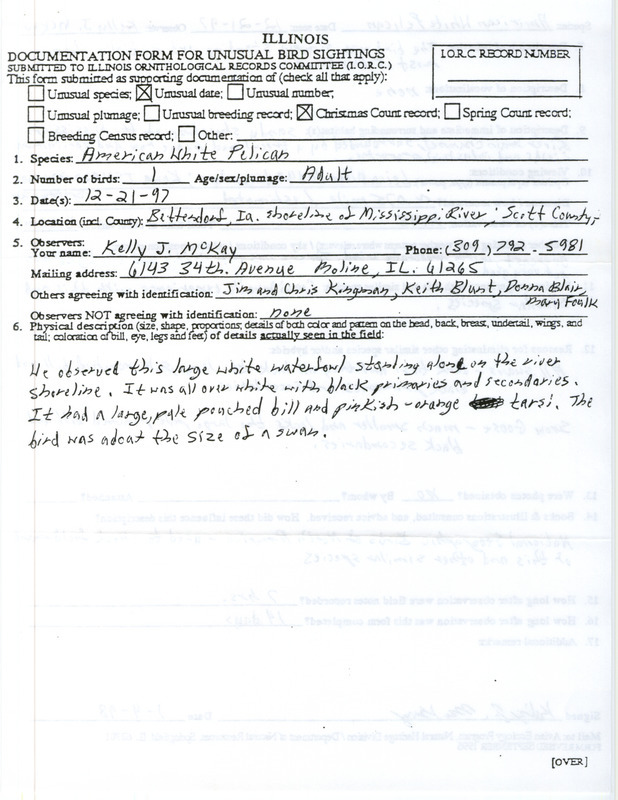 ILLINOIS
DOCUMENTATION FORM FOR UNUSUAL BIRD SIGHTINGS
SUBMITTED TO ILLINOIS ORNITHOLOGICAL RECORDS COMMITTEE (I.O.R.C.)
I.O.R.C. RECORD NUMBER
This form submitted as supporting documentation of (check all that apply):
Unusual species; Unusual date; Unusual number;
Unusual plumage; Unusual breeding record; Christmas Count record; Spring Count record;
Breeding Census record; Other:
1. Species: American White Pelican
2. Number of birds: 1 Age/sex/plumage: Adult
3. Date(s): 12-21-97
4. Location (incl. County): Bettendorf, Ia. shoreline of Mississippi River; Scott County,
5. Observers:
Your name: Kelly J. McKay Phone: (309) 792-5981
Mailing address: 6143 34th. Avenue Moline, IL. 61265
Others agreeing with identification: Jim and Chris Kingman, Keith Blunt, Donna Blair,
Mary Foulk
Observers NOT agreeing with identification: none
6. Physical description (size, shape, proportions; details of both color and pattern on the head, back, breast, undertail, wings, and
tail; coloration of bill, eye, legs and feet) of details actually seen in the field:
We observed this large white waterfowl standing along on the river
shoreline. It was all over white with black primaries and secondaries.
It had a large, pale pouched bill and pinkish-orange tarsi. The
bird was adout the size of a swan.
[OVER]